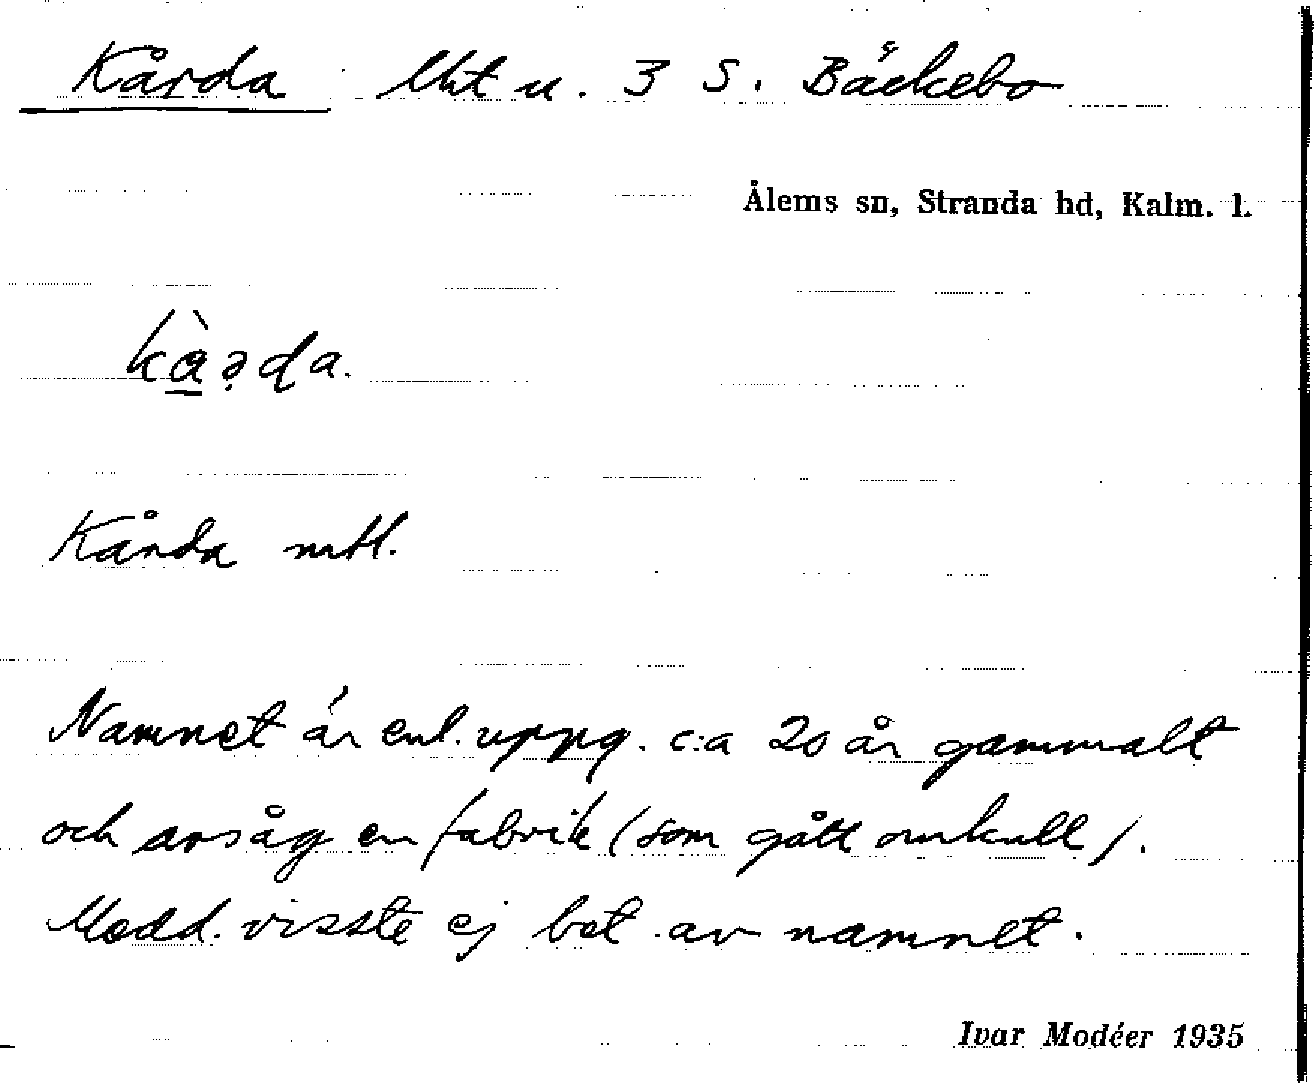 Kårda lht u. 3 S. Bäckebo
Ålems sn, Stranda hd, Kalm. l.
kàꝛda.
Kårda mtl.
Namnet är enl. uppg. c:a 20 år gammalt
och avsåg en fabrik (som gått omkull).
Medd. visste ej bet av namnet.
Ivar Modéer 1935